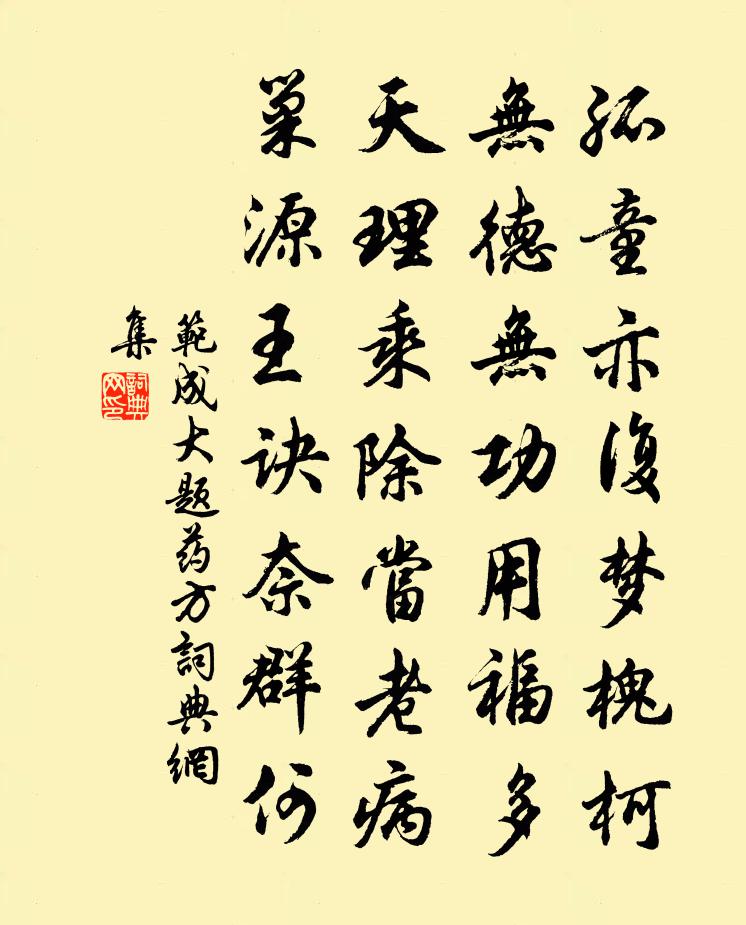 孤童亦復梦槐柯
無德無功用福多
天理乘除當老病
巢源王诀奈群何
範成大题药方詞典網
集
詞典
网印